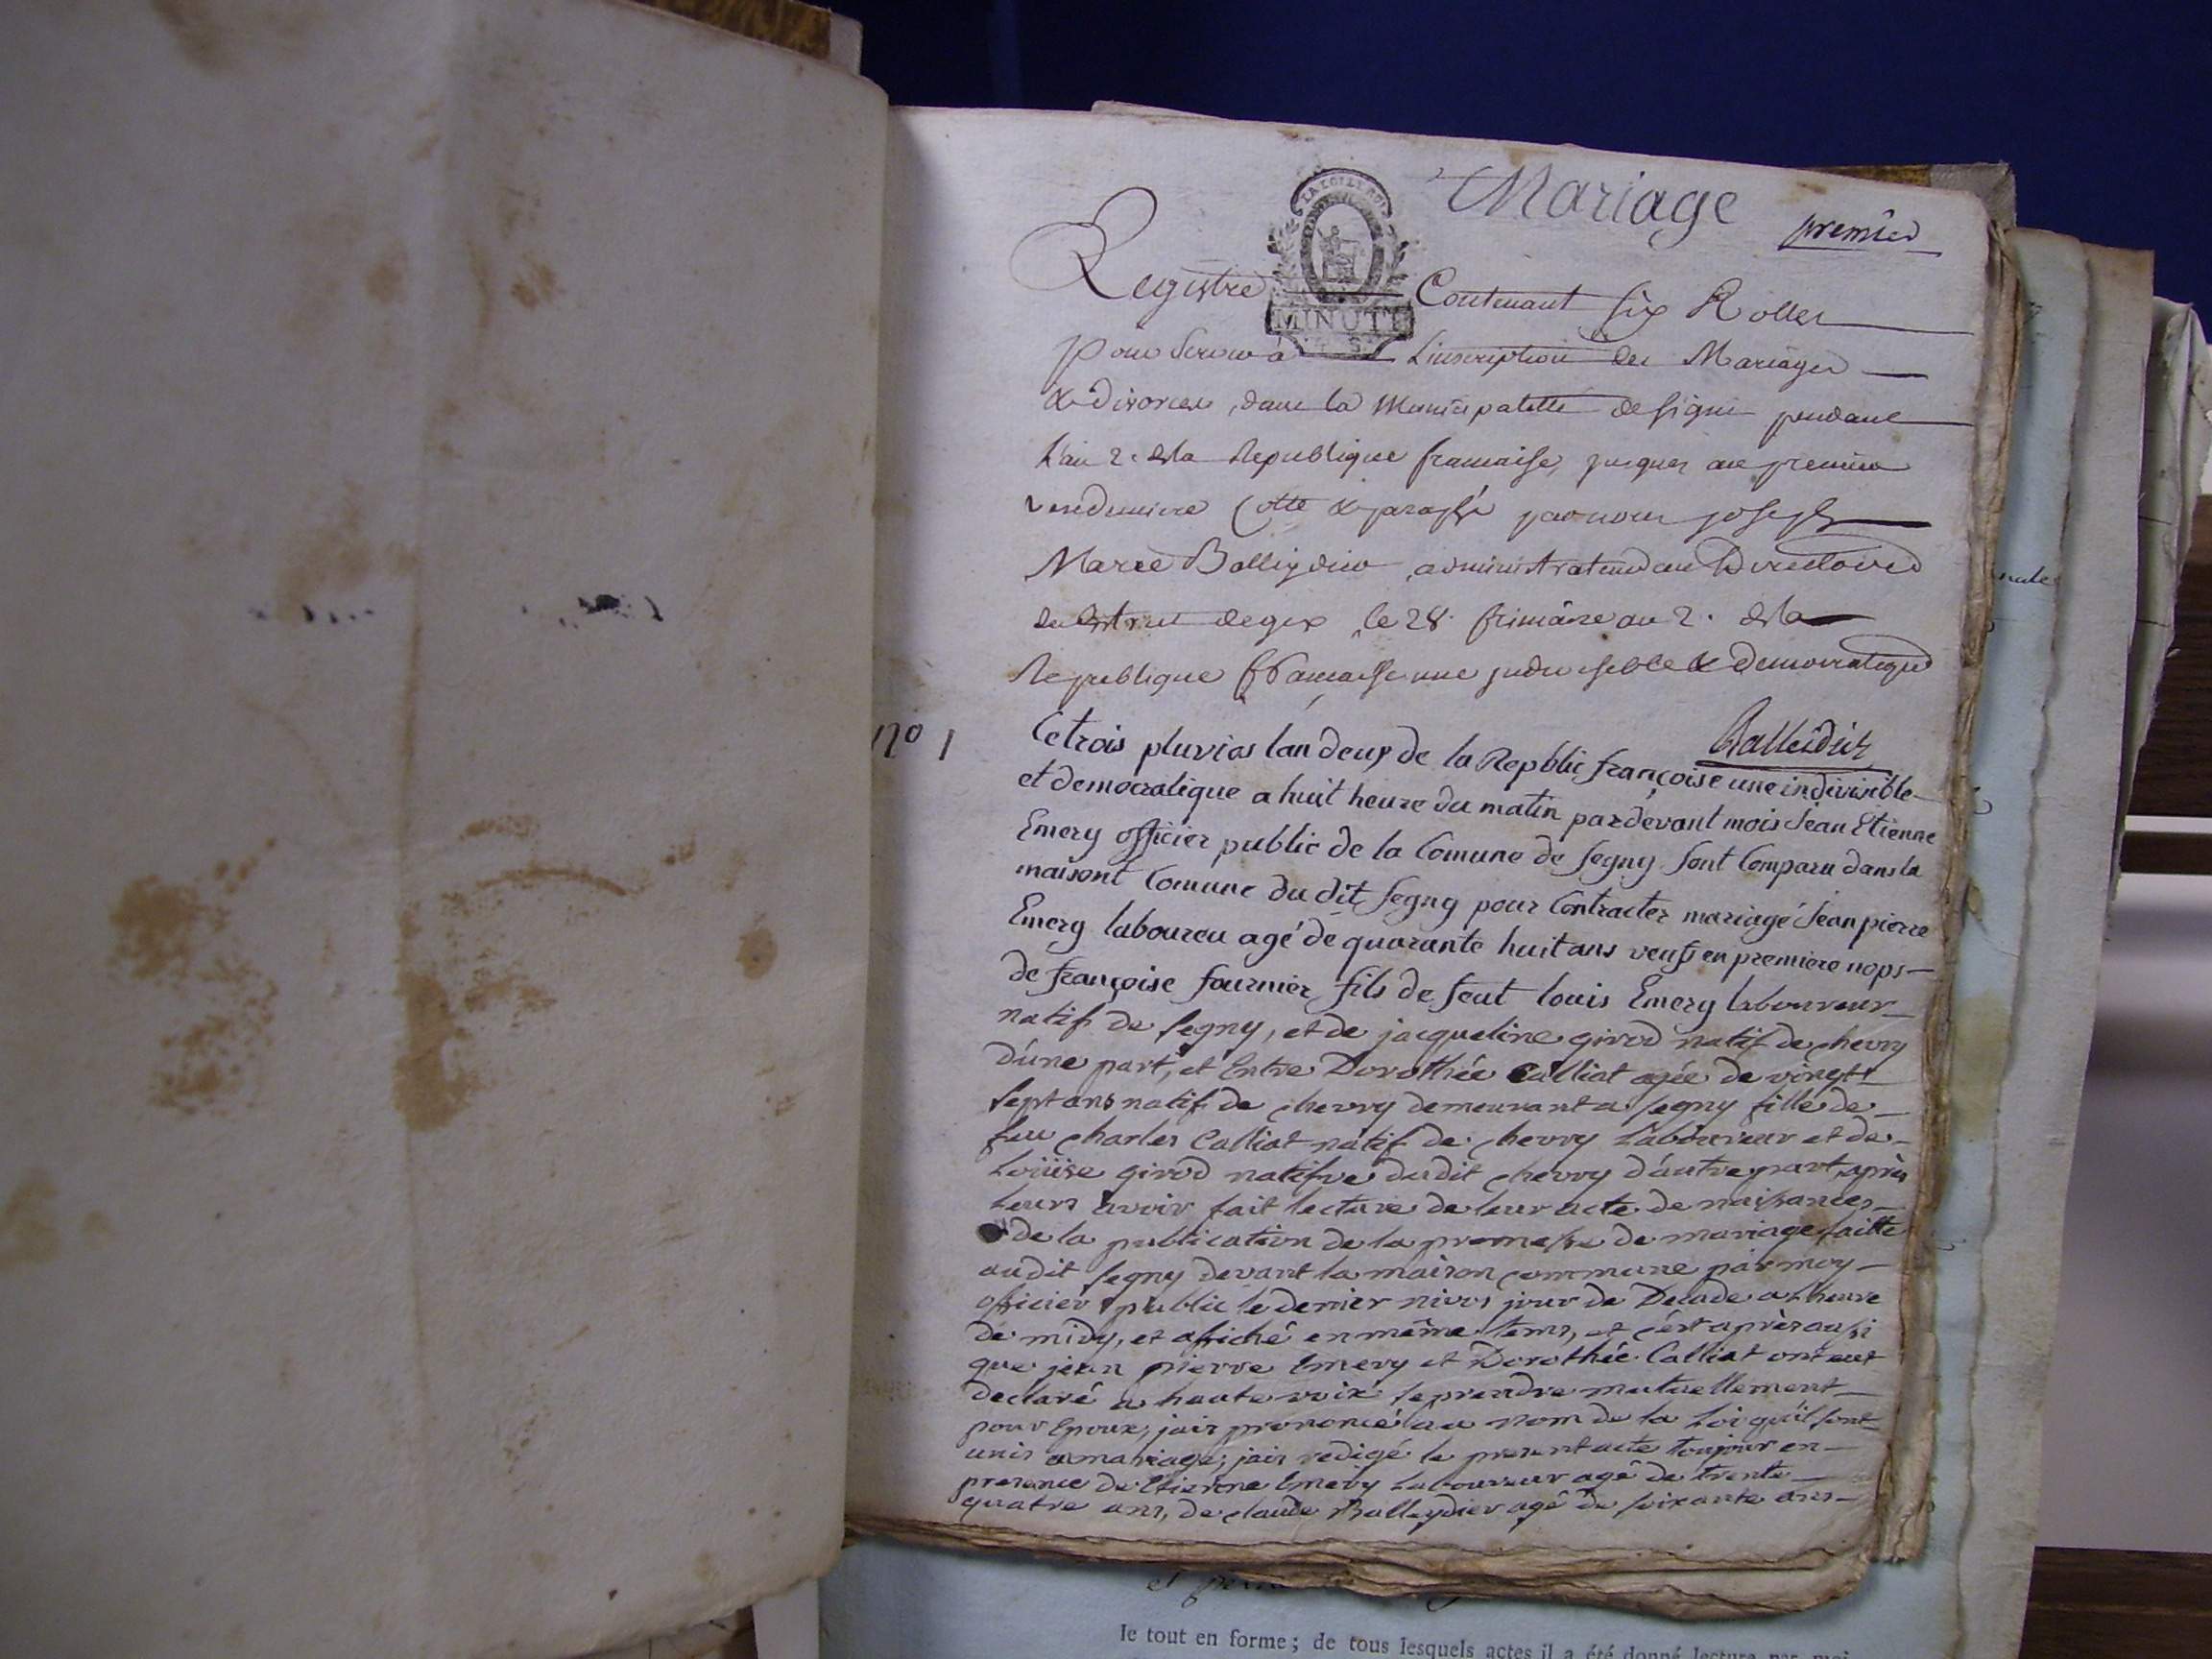 Mariage
premier
LA LOI ET
MINUTE
Registre Contenant six Rolles
pour servir à L'inscription des Mariages
& divorces, dans la Municipalitté de signi pendant
L'an 2. de la Republique francaise, jusques au premier
vendemiere Cotté & paraphé par nous joseph
Marie Balleydier administrateur au Directoire
du district de gex le 28. frimaire an 2. de la
Republique francaise une indivisible & democratique
Balleidier
no 1
Le trois pluvios lan deux de la Repblic françoise une indivisible
et democratique a huit heure du matin pardevant mois Jean Etienne
Emery officier public de la Comune de Segny sont Comparu dans la
maisont Comune du dit Segny pour Contracter mariagé Jean pierre
Emery laboureu agé de quarante huit ans veuf en premiere nops
de françoise fournier fils de feut louis Emery laboureur
natif de Segny, et de jacqueline girod natif de chevry
d'une part, et Entre Dorothée Calliat agée de vingt
sept ans natif de chevry demeurant a Segny fille de
feu charles Calliat natif de chevry Laboureur et de
Loüise girod natifve dudit chevry d'autre part, après
Leurs avoir fait lecture de leur acte de naissances
de la publication de la promesse de mariage faitte
audit Segny devant la maison commune par moy
officier public le dernier nivos jour de Decade a Lheure
de midy, et affiché en même tems, et c'est après aussi
que jean pierre Emery et Dorothée Calliat ont eut
declaré a haute voix se prendre mutuellement
pour Epoux, jais prononcé au nom de la Loi qu'il sont
unis a mariage; jais redigé le present acte toujour en
presence de Etienne Emery Laboureur agé de trente
quatre ans, de claude Balleydier agé de soixante ans
le tout en forme; de tous lesquels actes il a été donné lecture par moi